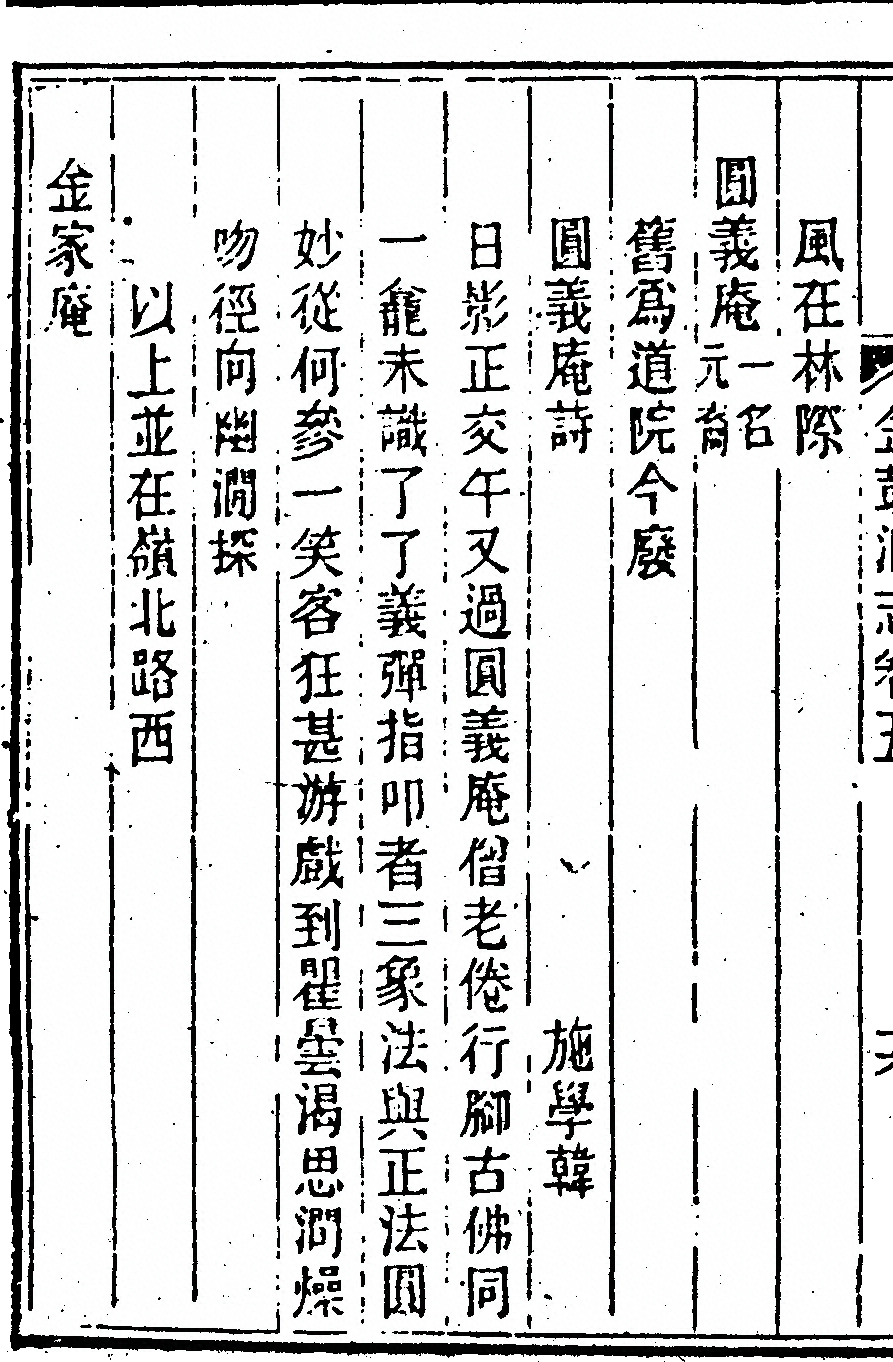 風在林際
圓義庵一名元裔
舊爲道院今廢
圓義庵詩 施學韓
日影正交午又過圓義庵僧老倦行腳古佛同
一龕未識了了義彈指叩者三象法與正法圓
妙從何參一笑客狂甚游戲到瞿曇渴思澗燥
吻徑向幽澗探
以上並在嶺北路西
金家庵